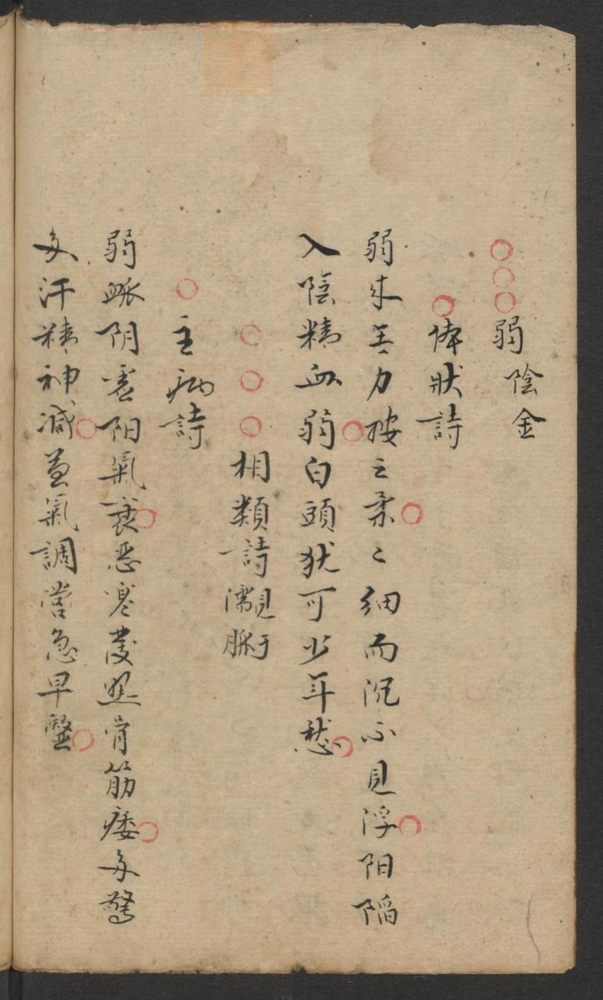 弱 陰金
体狀詩
弱来无力按之柔柔細而沉不見浮阳陷
入陰精血弱白頭犹可少年愁
相類詩 濡脉見于
主病詩
弱脈阴虚阳氣衰恶寒發熱骨筋痿多驚
多汗精神减益氣調营急早醫